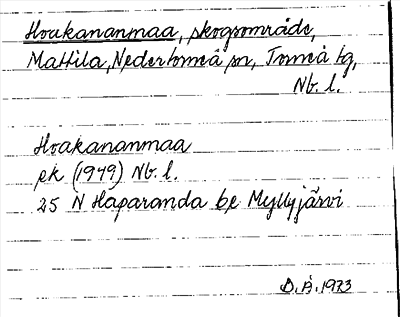 Houkananmaa, skogsområde,
Mattila, Nedertorneå sn, Torneå tg,
Nb. l.
Hoakananmaa
ek (1949) Nb. l.
25 N Haparanda be Myllyjärvi
D.Å. 1973